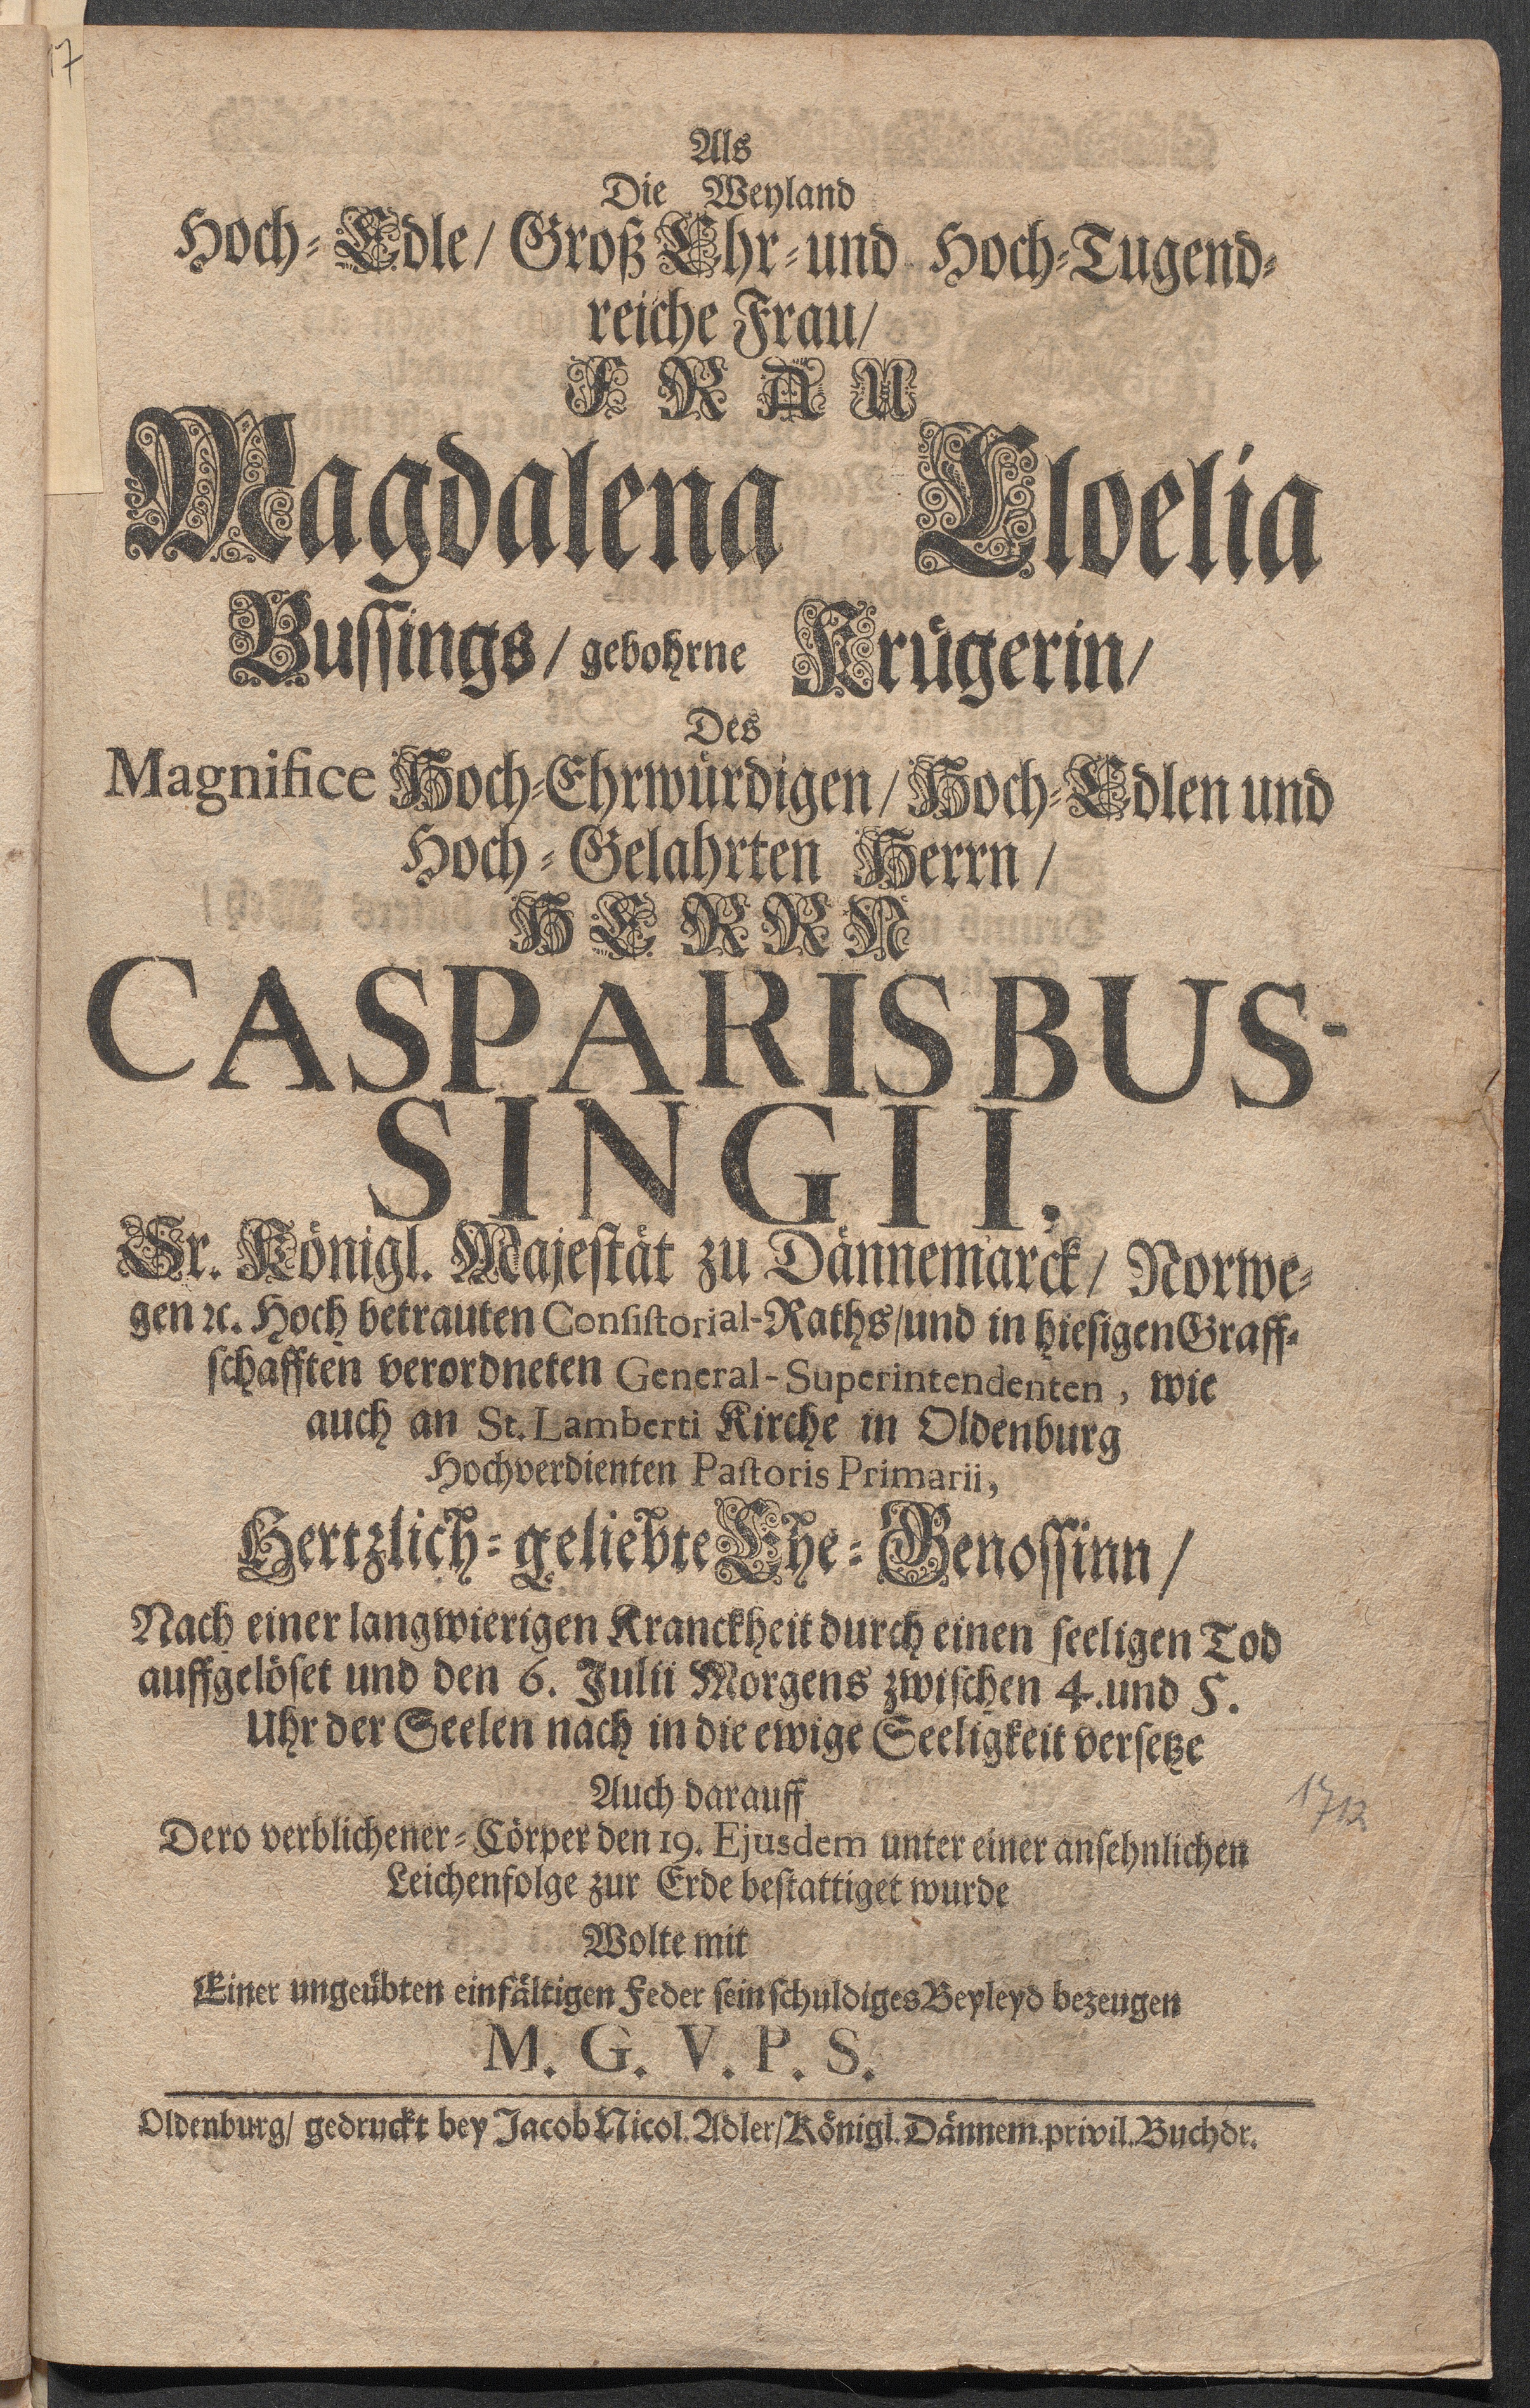 17
Als
Die Weyland
Hoch-Edle/ Groß Ehr-und Hoch-Tugend-
reiche Frau/
FRAU
Magdalena Cloelia
Bussings/ gebohrne Krügerin/
Des
Magnifice Hoch-Ehrwürdigen/ Hoch-Edlen und
Hoch-Gelahrten Herrn/
HERRN
CASPARIS BUS-
SINGII,
Sr. Königl. Majestät zu Dännemarck/ Norwe-
gen ꝛc. Hoch betrauten Consistorial-Raths/und in hiesigen Graff-
schafften verordneten General-Superintendenten, wie
auch an St. Lamberti Kirche in Oldenburg
Hochverdienten Pastoris Primarii,
Hertzlich-geliebte Ehe-Genossinn/
Nach einer langwierigen Kranckheit durch einen seeligen Tod
auffgelöset und den 6. Julii Morgens zwischen 4. und 5.
Uhr der Seelen nach in die ewige Seeligkeit versetze
Auch darauff
1712
Dero verblichener-Cörper den 19. Ejusdem unter einer ansehnlichen
Leichenfolge zur Erde bestattiget wurde
Wolte mit
Einer ungeübten einfältigen Feder sein schuldiges Beyleyd bezeugen
M. G. V. P. S.
Oldenburg/ gedruckt bey Jacob Nicol. Adler/Königl. Dännem. privil. Buchdr.